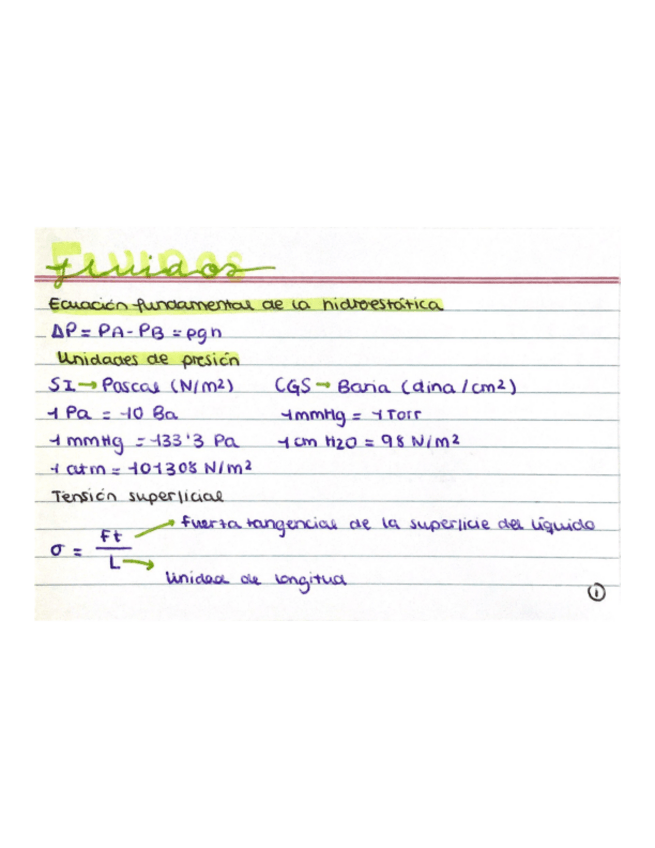 Fluidos
Ecuación fundamental de la hidroestática
ΔP = PA - PB = ρgh
Unidades de presión
SI → Pascal (N/m2) CGS → Baria (dina/cm2)
1 Pa = 10 Ba 1mmHg = 1 Torr
1 mmHg = 133'3 Pa 1 cm H2O = 98 N/m2
1 atm = 101308 N/m2
Tensión superficial
σ = Ft / L
→ fuerza tangencial de la superficie del líquido
→ Unidad de longitud
1